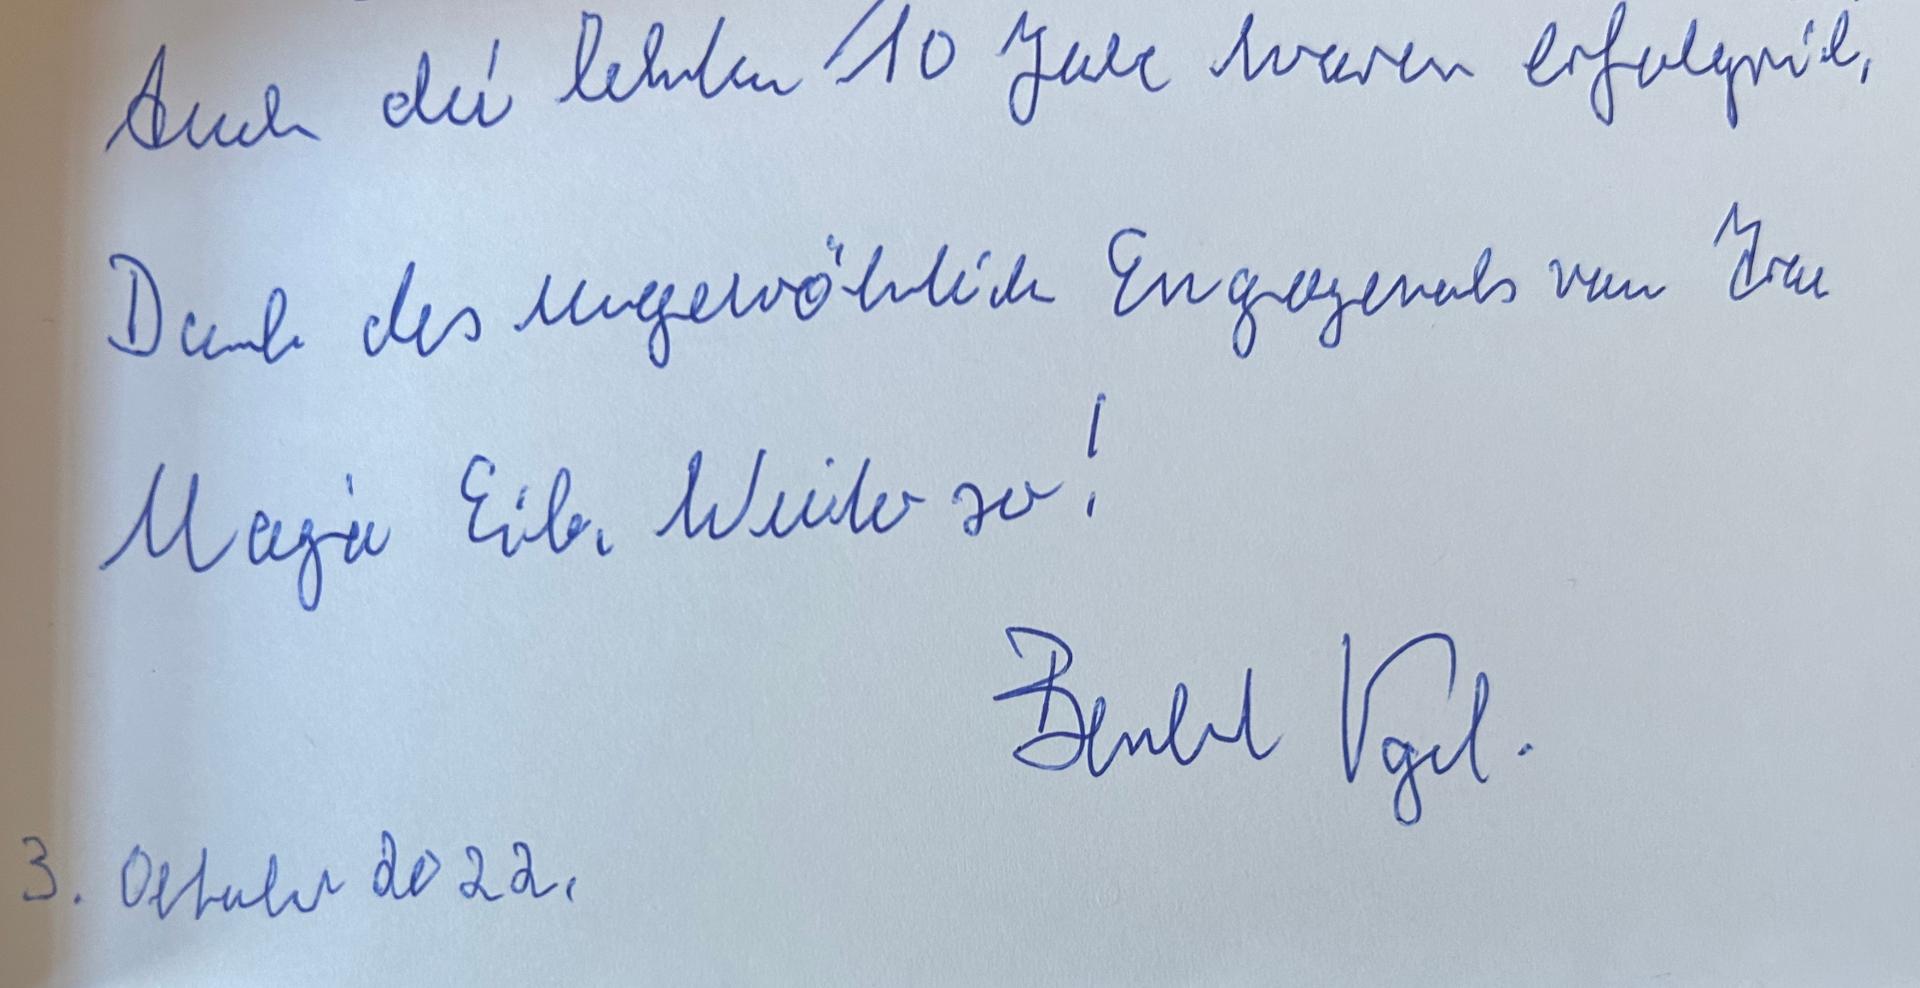 Auch die letzten 10 Jahre waren erfolgreich,
Dank des ungewöhnlichen Engagements von Frau
Maja Eib. Weiter so!
Bernhard Vogel.
3. Oktober 2022.